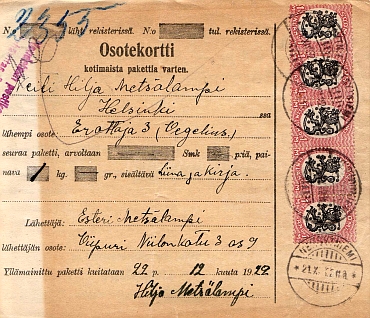 2355
N. läht. rekisterissä. N:o tul. rekisterissä.
Osotekortti
kotimaista pakettia varten.
Neiti Hilja Metsälampi
Helsinki ssa
lähempi osote: Erottaja 3 (Vegelius.)
seuraa paketti, arvoltaan Smk p:iä, pai-
nava 1 kg. gr., sisältävä Liina ja kirja.
Lähettäjä: Esteri Metsälampi
lähettäjän osote: Viipuri Niilonkatu 3 as 7
Yllämainittu paketti kuitataan 22 p. 12 kuuta 1922
Hilja Metsälampi